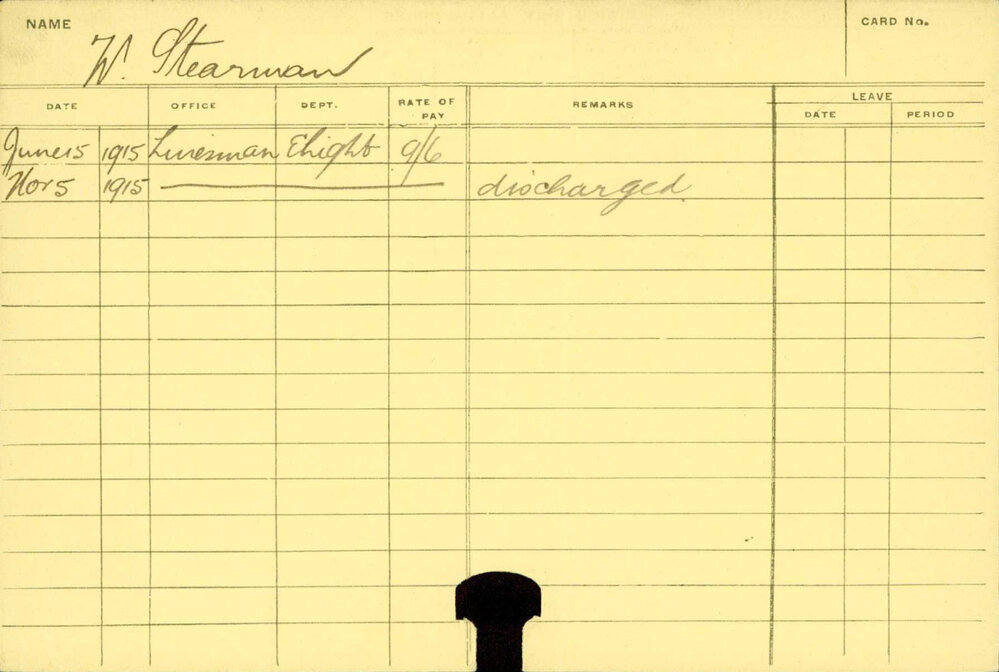 NAME W. Stearman CARD No.
DATE OFFICE DEPT. RATE OF PAY REMARKS LEAVE
DATE PERIOD
June 15 1915 Linesman Elight 9/6
Nov 5 1915 discharged.